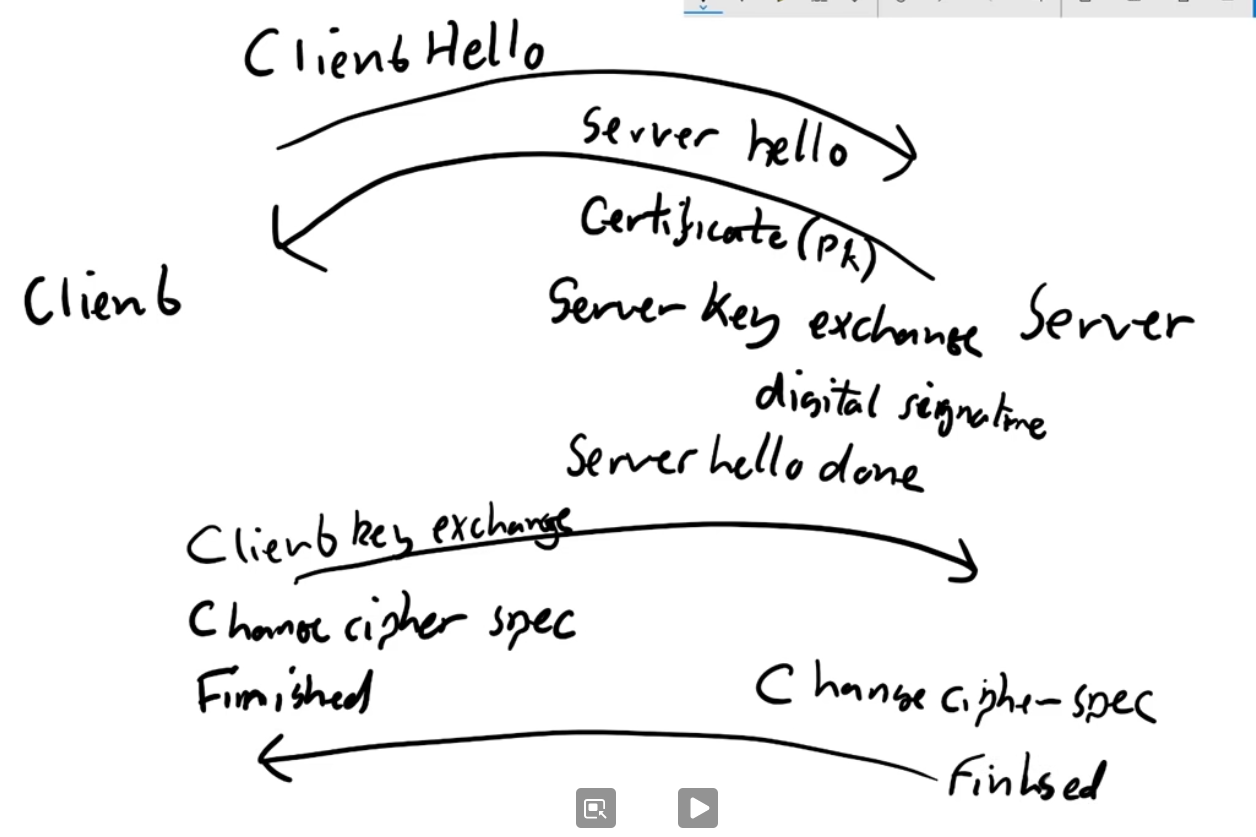 Client Hello
Server hello
Certificate (Pk)
Client
Server key exchange
Server
digital signature
Server hello done
Client key exchange
Change cipher spec
Finished
Change cipher spec
Finhsed